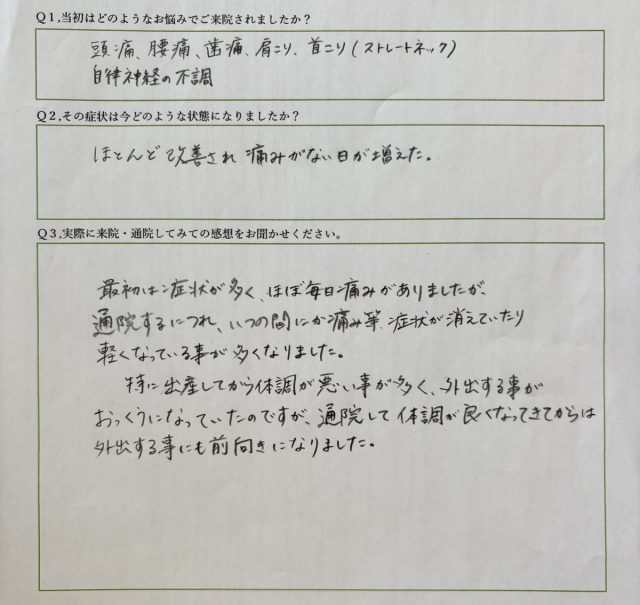 Q1,当初はどのようなお悩みでご来院されましたか？
頭痛、腰痛、歯痛、肩こり、首こり(ストレートネック)
自律神経の不調
Q2,その症状は今どのような状態になりましたか？
ほとんど改善され痛みがない日が増えた。
Q3,実際に来院・通院してみての感想をお聞かせください。
最初は症状が多く、ほぼ毎日痛みがありましたが、
通院するにつれ、いつの間にか痛み等、症状が消えていたり
軽くなっている事が多くなりました。
特に出産してから体調が悪い事が多く、外出する事が
おっくうになっていたのですが、通院して体調が良くなってきてからは
外出する事にも前向きになりました。